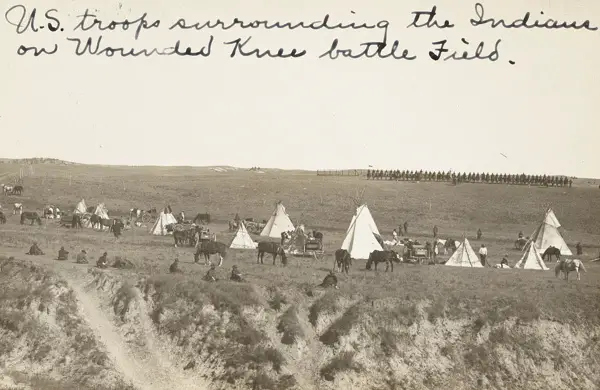 U.S. troops surrounding the Indians
on Wounded Knee battle Field.